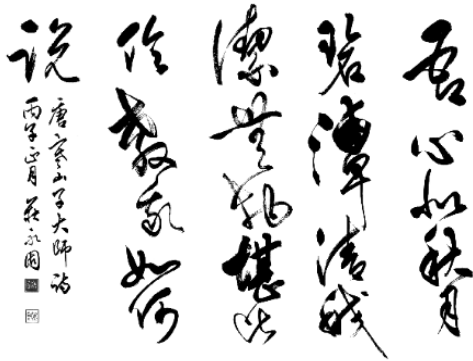 吾心似秋月
碧潭清皎
潔無物堪比
倫教我如何
說
唐寒山子大師詩
丙子正月